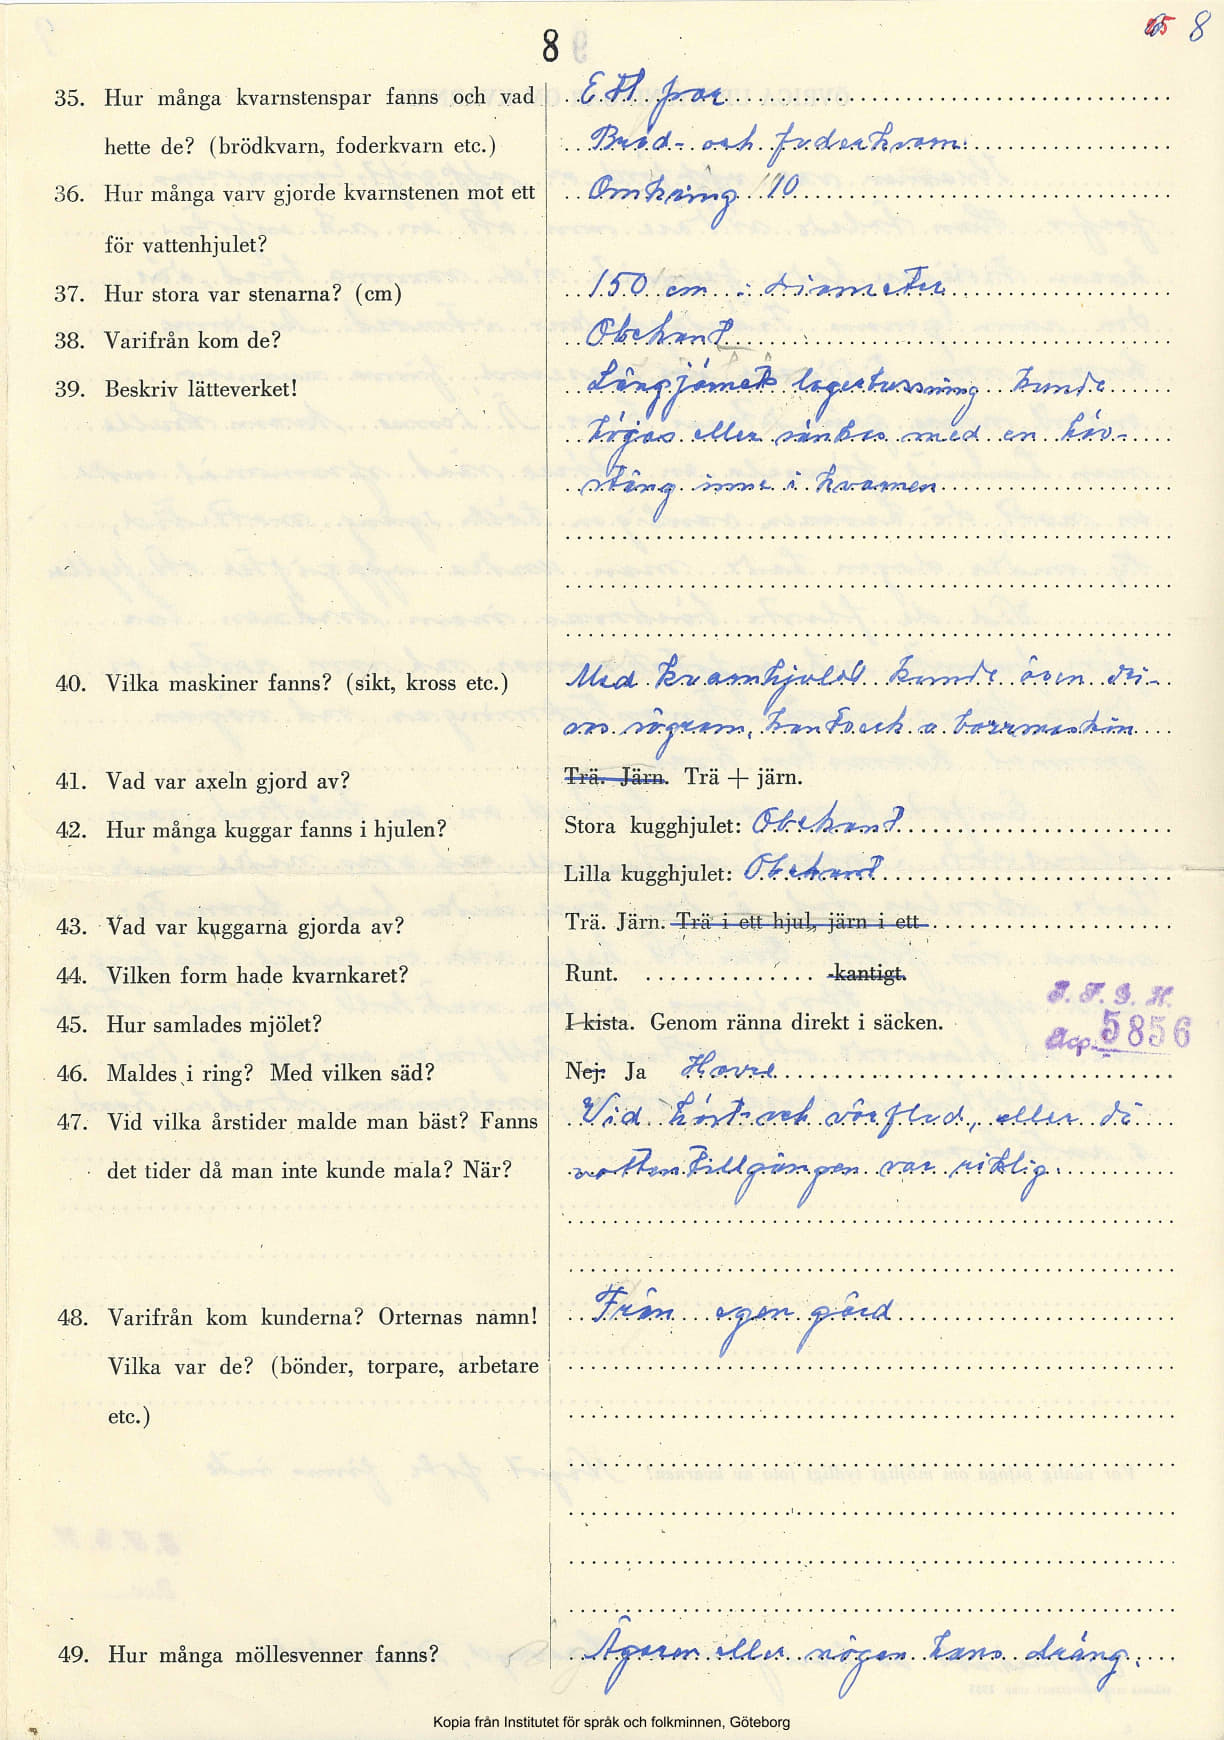 8
8
35. Hur många kvarnstenspar fanns och vad Ett par
hette de? (brödkvarn, foderkvarn etc.) Bröd- och foderkvarn.
36. Hur många varv gjorde kvarnstenen mot ett Omkring 10
för vattenhjulet?
37. Hur stora var stenarna? (cm) 150 cm i diameter
38. Varifrån kom de? Obekant
39. Beskriv lätteverket! Långjärnets lagerbussning kunde
höjas eller sänkas med en häv-
stång inne i kvarnen
40. Vilka maskiner fanns? (sikt, kross etc.) Med kvarnhjulet kunde även dri-
vas sågram, kantverk o. borrmaskin
41. Vad var axeln gjord av? Trä. Järn. Trä + järn.
42. Hur många kuggar fanns i hjulen? Stora kugghjulet: Obekant
Lilla kugghjulet: Obekant
43. Vad var kuggarna gjorda av? Trä. Järn. Trä i ett hjul, järn i ett
44. Vilken form hade kvarnkaret? Runt. -kantigt.
45. Hur samlades mjölet? I kista. Genom ränna direkt i säcken.
I. F. G. H.
Acc. 5856
46. Maldes i ring? Med vilken säd? Nej. Ja Havre
47. Vid vilka årstider malde man bäst? Fanns Vid höst- och vårflod, eller då
det tider då man inte kunde mala? När? vattentillgången var riklig.
48. Varifrån kom kunderna? Orternas namn! Från egen gård
Vilka var de? (bönder, torpare, arbetare
etc.)
49. Hur många möllesvenner fanns? Ägaren eller någon hans dräng.
Kopia från Institutet för språk och folkminnen, Göteborg